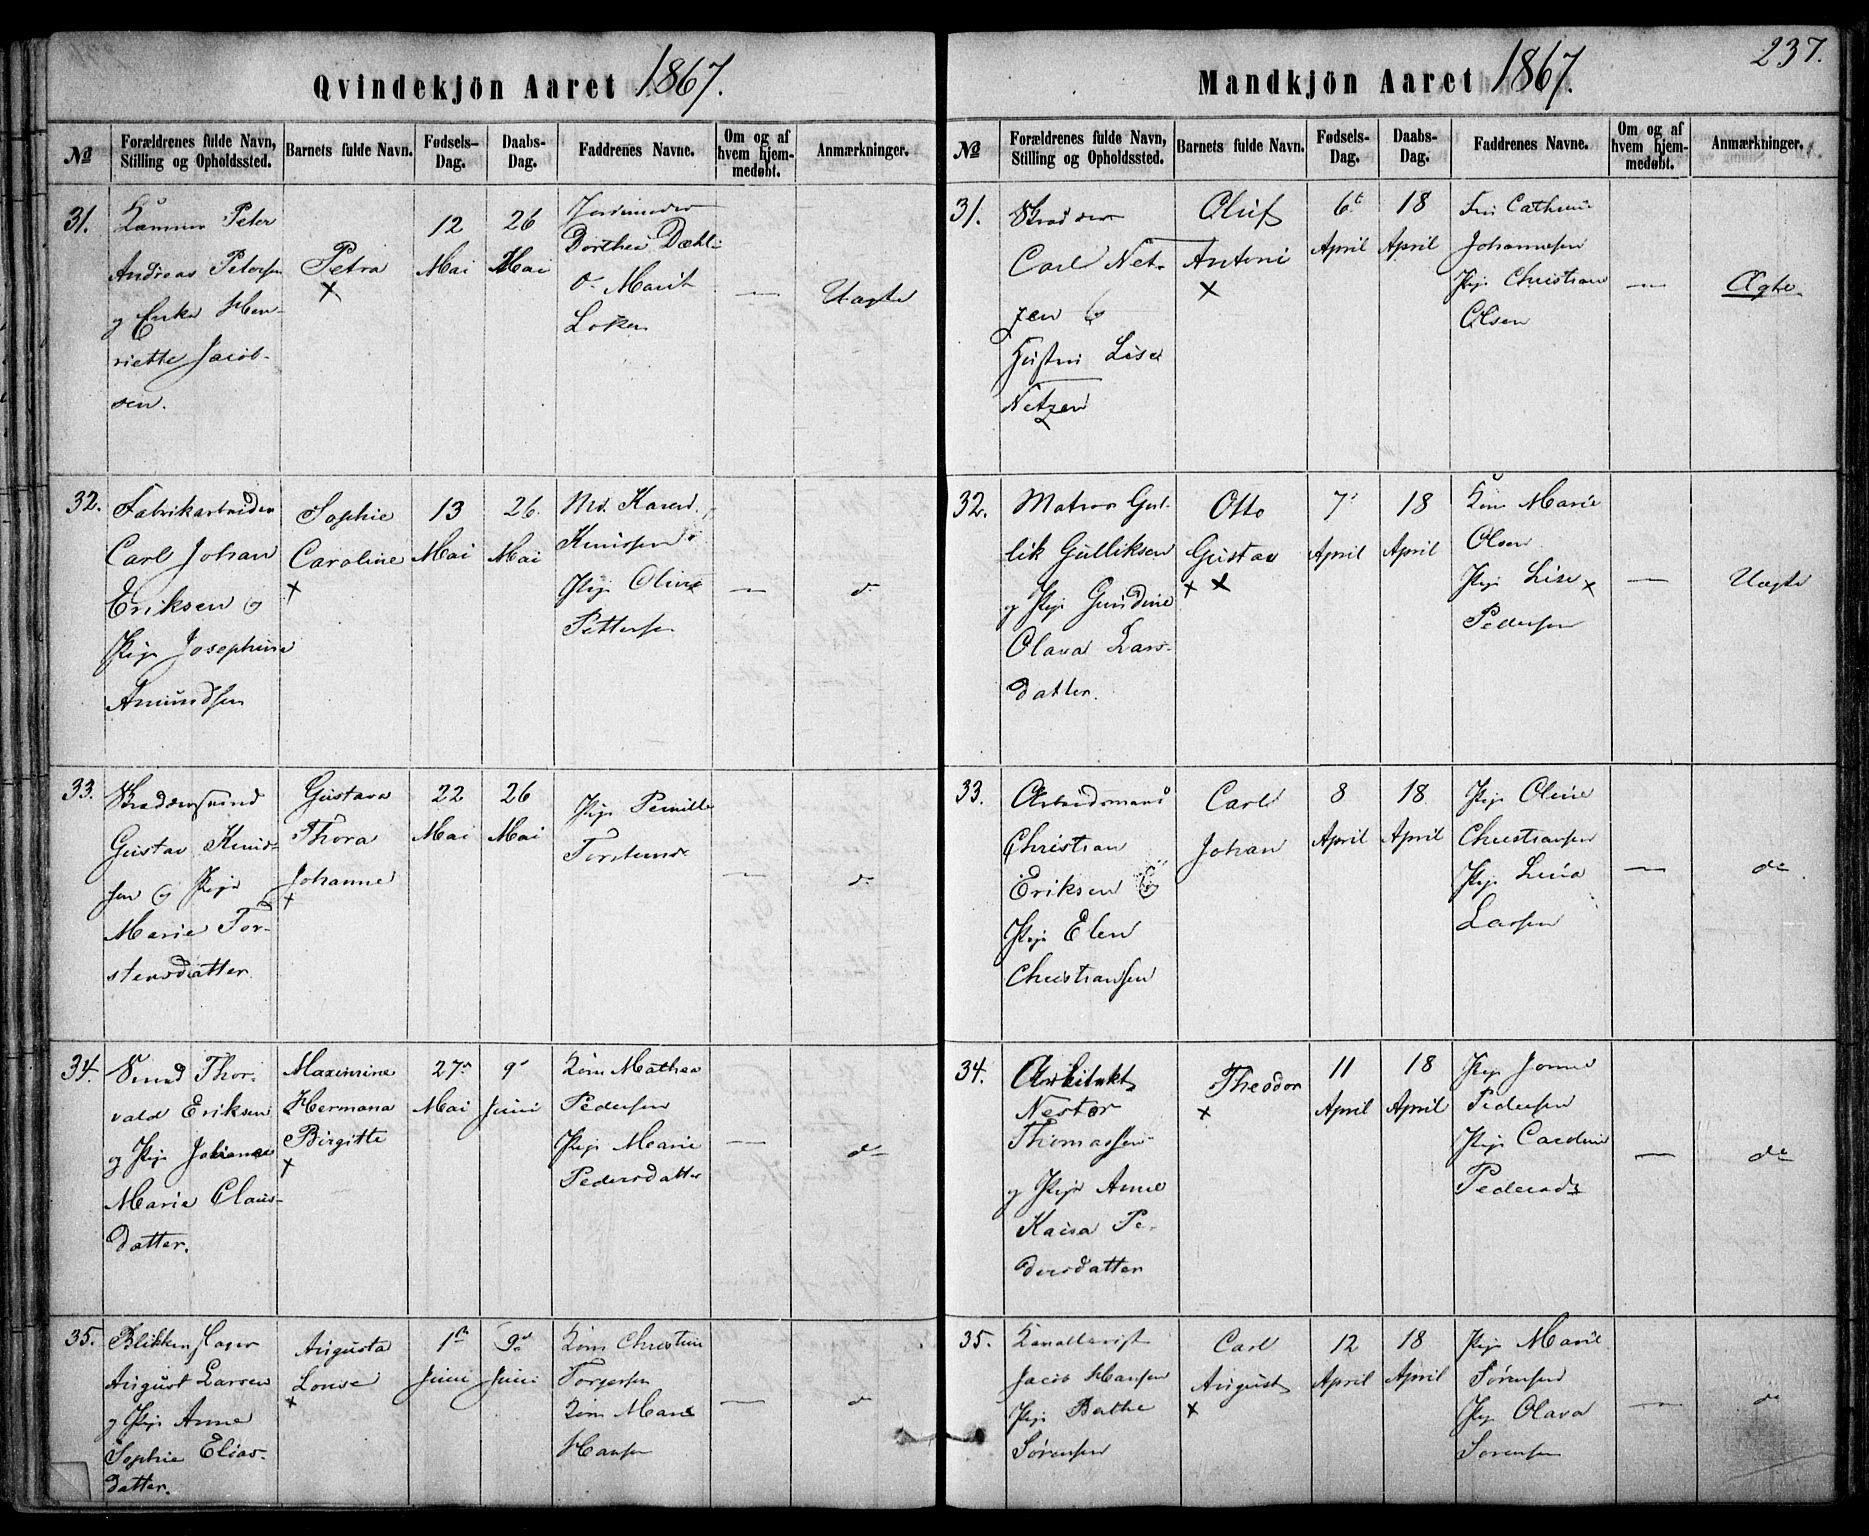 Qvindekjön Aaret 1867.
№
Forældrenes fulde Navn,
Stilling og Opholdssted.
Barnets fulde Navn.
Fødsels-
Dag.
Daabs-
Dag.
Faddrenes Navne.
Om og af
hvem hjem-
medøbt.
Anmærkninger.
31.
Peter
Andreas Petersen
og Enke Hen-
riette Jacob-
sen.
Petra
×
12
Mai
26
Mai
Jordmoder
Dorthea Dæhl-
o- Marit
Loken
—
Uægte
32.
Fabrikarbeider
Carl Johan
Eriksen og
Pige Josephine
Amundsen
Sophie
Caroline
×
13
Mai
26
Mai
Md. Karen
Knudsen
Pige Oline
Pettersen
—
do
33.
Skræddersvend
Gustav Knud-
sen og Pige
Marie Tor-
stensdatter
Gustava
Thora
Johanne
×
22
Mai
26
Mai
Pige Pernille
—
do
34.
Svend Thor-
vald Eriksen
og Pige Johanne
Marie Claus-
datter.
Maximine
Hermana
Birgitte
×
27
Mai
9
Juni
Kone Mathea
Pedersen
Pige Marie
Pedersdatter
—
do
35.
Blikkenslager
August Larsen
og Pige Anne
Sophie Elias-
datter.
Augusta
Louise
×
1
Juni
9
Juni
Kone Christine
Torgersen
Kone Marie
Hansen
—
do
237.
Mandkjön Aaret 1867.
№
Forældrenes fulde Navn,
Stilling og Opholdssted.
Barnets fulde Navn.
Fødsels-
Dag.
Daabs-
Dag.
Faddrenes Navne.
Om og af
hvem hjem-
medøbt.
Anmærkninger.
31.
Skrædder
Carl Net-
zen og
Hustru Lise
Netzen
Oluf
Antoni
×
6
April
18
April
Johannesen
Pige Christiane
Olsen
—
Ægte
32.
Matros Gul-
lik Gulliksen
og Pige Gundine
Olava Lars-
datter.
Otto
Gustav
× ×
7
April
18
April
Kone Marie
Olsen
Pige Lise ×
Pedersen
—
Uægte
33.
Arbeidsmand
Christian
Eriksen og
Pige Elen
Christiansen
Carl
Johan
8
April
18
April
Pige Oline
Christiansen
Pige Lina
Larsen
—
do
34.
Arkitekt
Nestor
Thomassen
og Pige Anne
Kaisa Pe-
dersdatter
Theodor
×
11
April
18
April
Pige
Pedersen
Pige Caroline
Pedersd
—
do
35.
Jacob Hansen
Pige Berthe
Sørensen
Carl
August
×
12
April
18
April
Pige Marie
Sørensen
Pige Olava
Sørensen
—
do